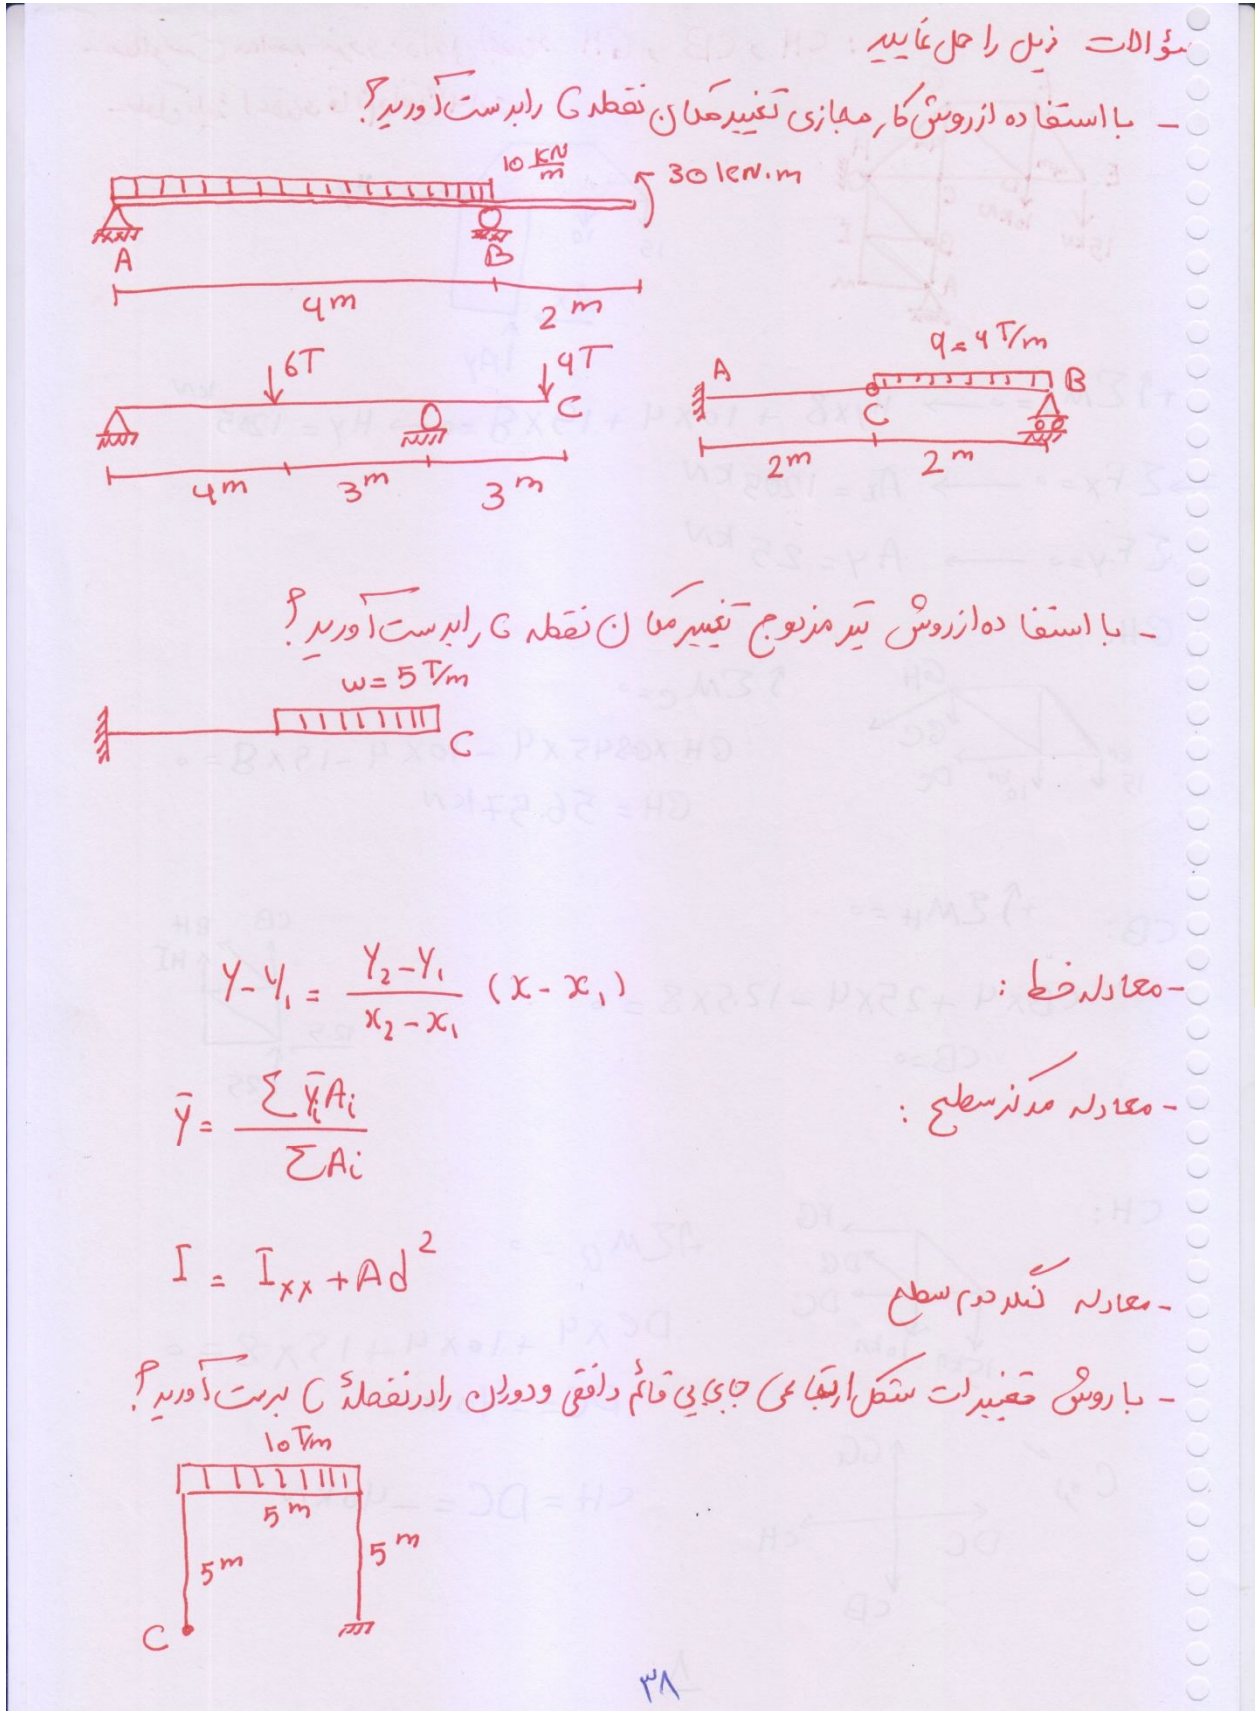 سؤالات ذیل را حل نمایید
- با استفاده از روش کار مجازی تغییر مکان نقطه C را بدست آورید؟
10 KN/m
30 KN.m
A
B
4m
2m
6T
4T
C
4m
3m
3m
q=4T/m
A
B
C
2m
2m
- با استفاده از روش تیر مزدوج تغییر مکان نقطه C را بدست آورید؟
w=5T/m
C
- معادله خط :
Y-Y₁ = (Y₂-Y₁)/(x₂-x₁) (x-x₁)
- معادله مرکز سطح :
ȳ = ΣȳᵢAᵢ/ΣAᵢ
- معادله گشتاور دوم سطح
I = Ixx + Ad²
- با روش تغییرات شکل ارتجاعی جابجایی قائم و افقی و دوران را در نقطهٔ C بدست آورید؟
10T/m
5m
5m
5m
C
۳۸